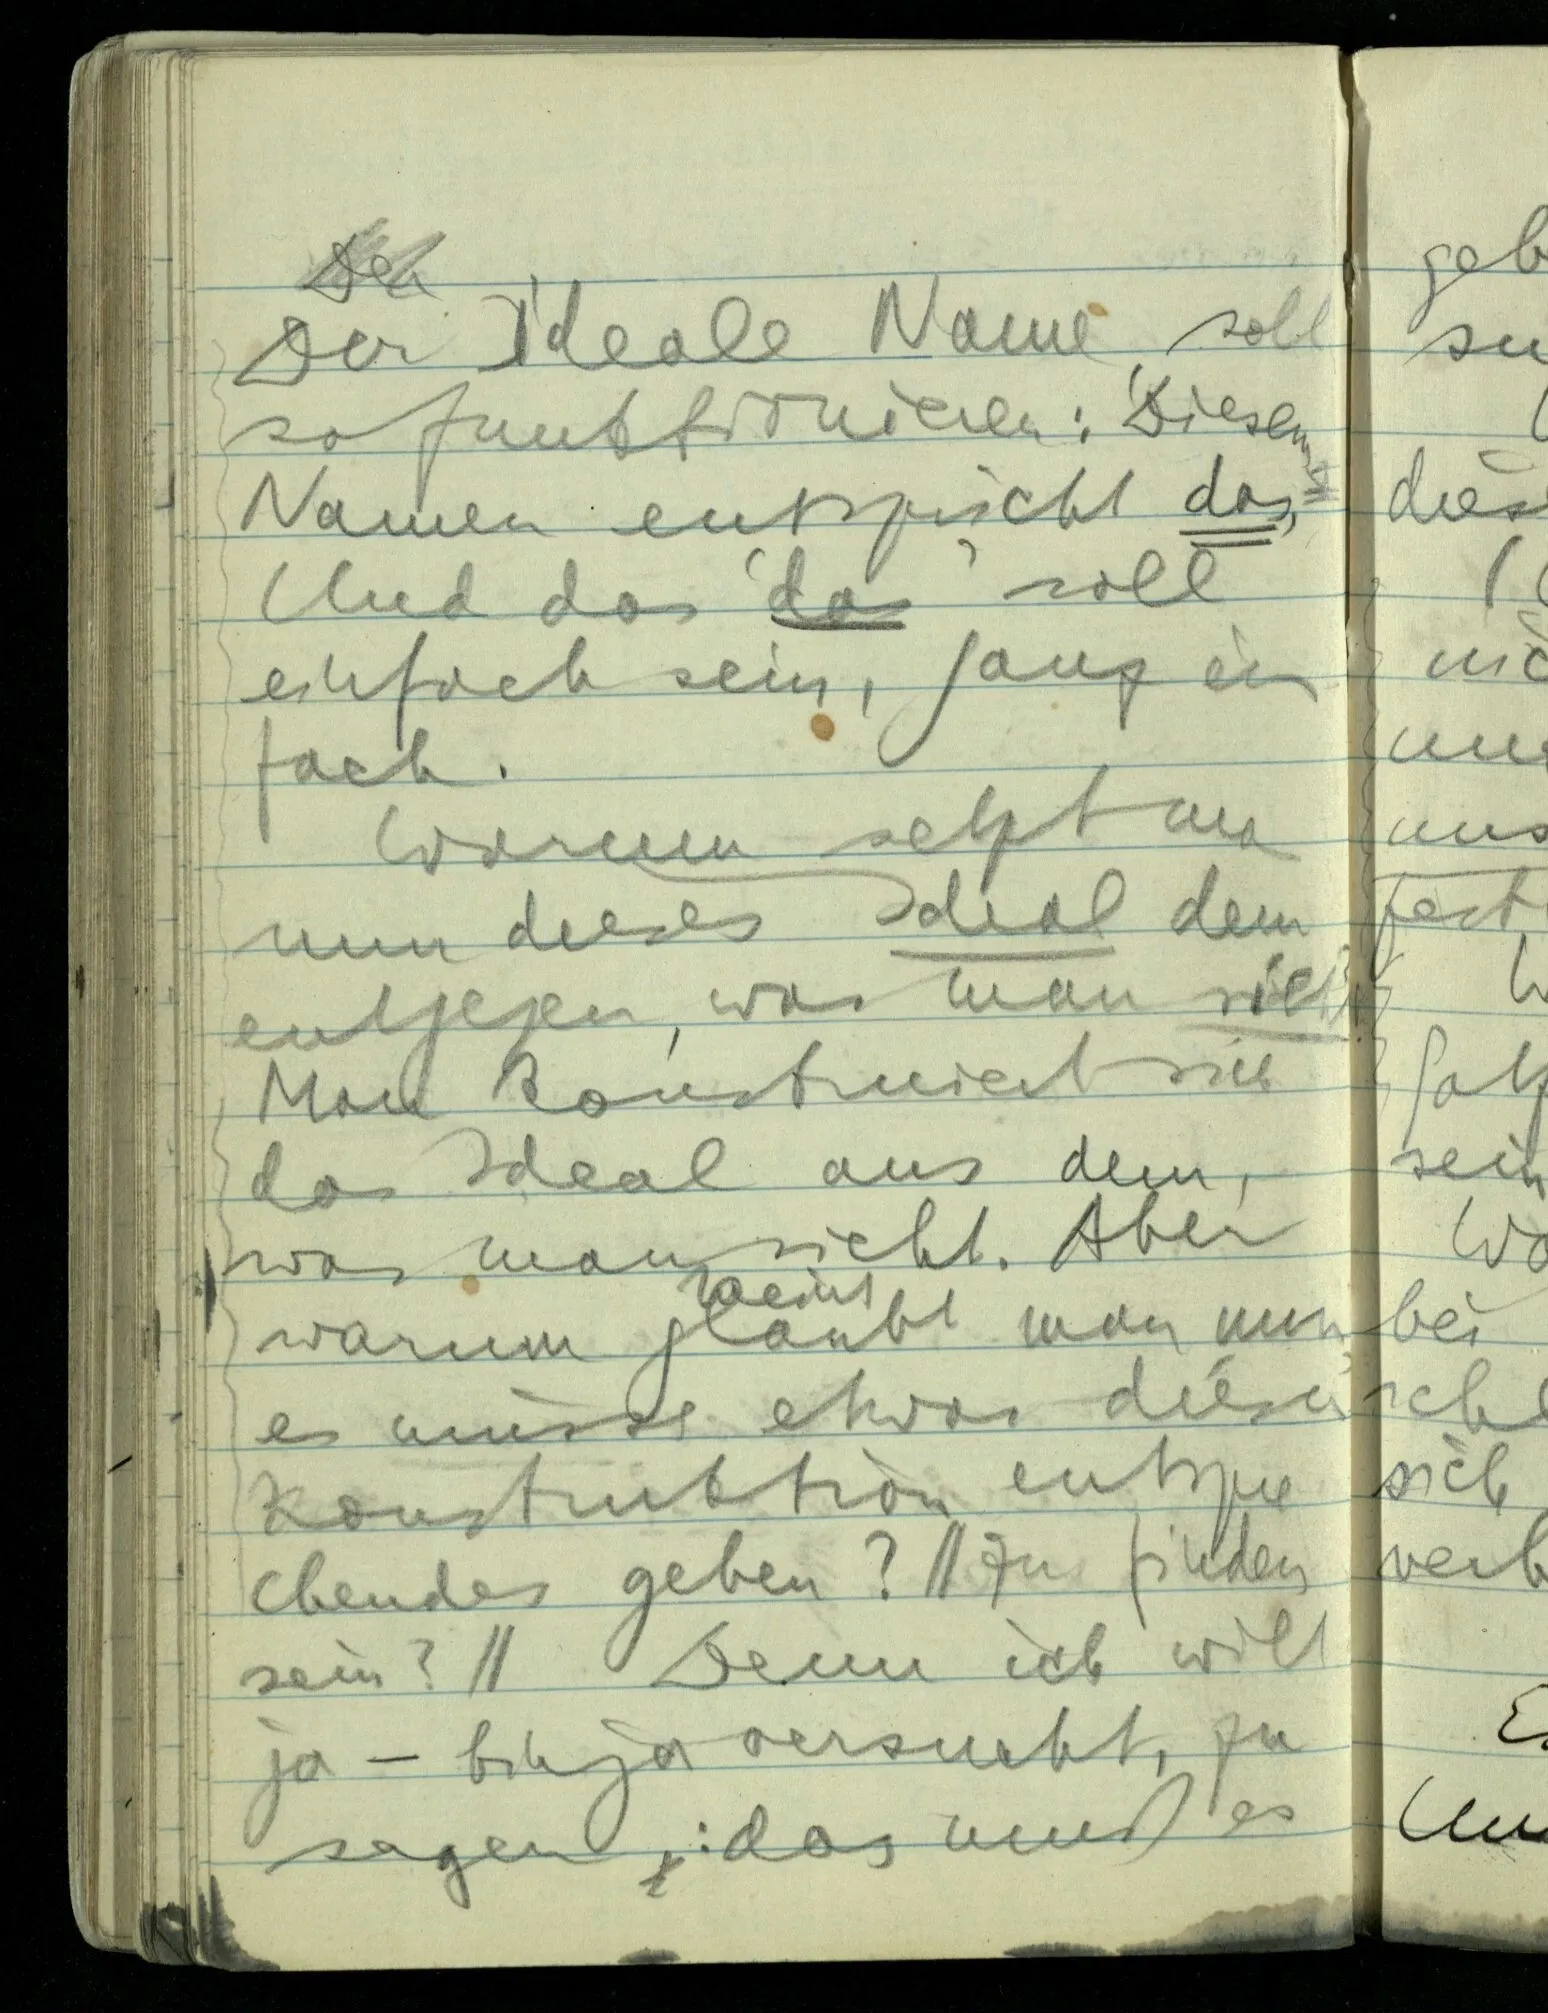 Der
Der Ideale Name soll
so funktionieren: 'Diesem
Namen entspricht das,
Und das 'das' soll
einfach sein, ganz ein
fach.
Warum setzt man
nun dieses Ideal dem
entgegen, was man sieht?
Man konstruiert sich
das Ideal aus dem,
was man sieht. Aber
meint
warum glaubt man nun,
es müsse etwas dieser
Konstruktion entspre
chendes geben? // zu finden
sein? // Denn ich will
ja – bin ja versucht, zu
sagen: das muß es
geb
su
dies
nic
uns
fest
sein
bei
sich
verb